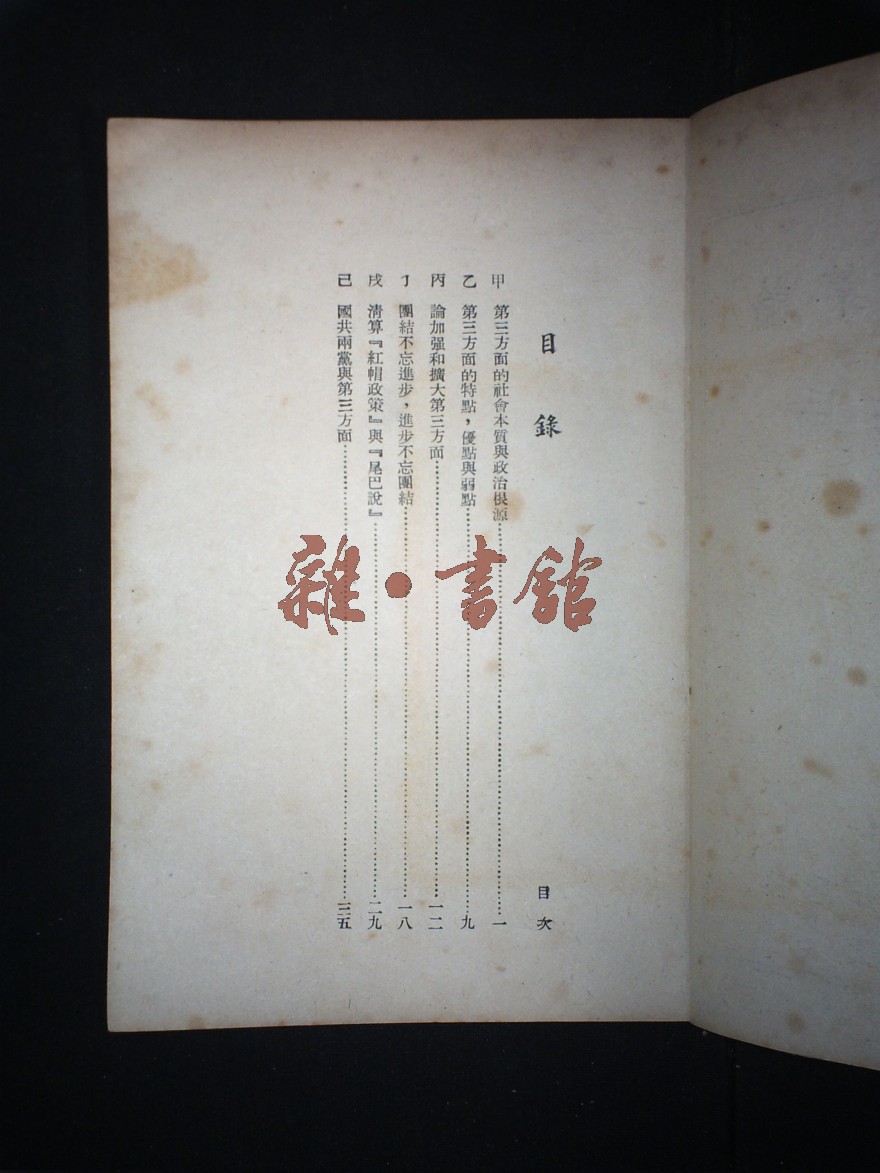 目錄
甲　第三方面的社會本質與政治根源……一
乙　第三方面的特點，優點與弱點……九
丙　論加强和擴大第三方面……一二
丁　團結不忘進步，進步不忘團結……一八
戌　清算『紅帽政策』與『尾巴說』……二九
己　國共兩黨與第三方面……三五
目次
雜・書館